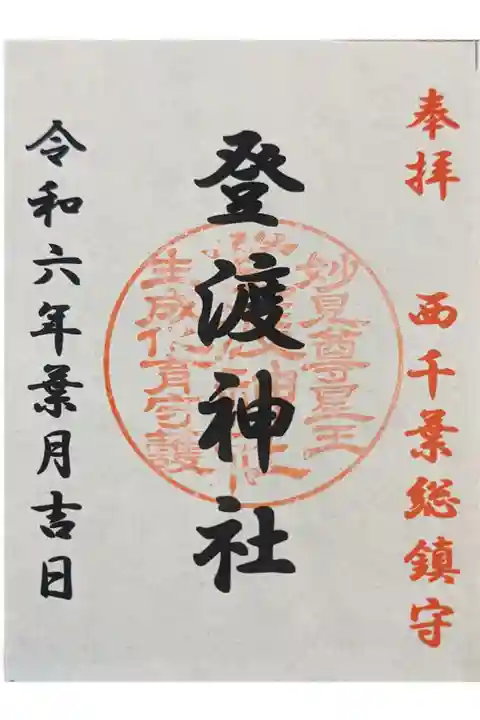 奉拝 西千葉総鎮守
登渡神社
妙見尊星王
生成化育守護
令和六年葉月吉日